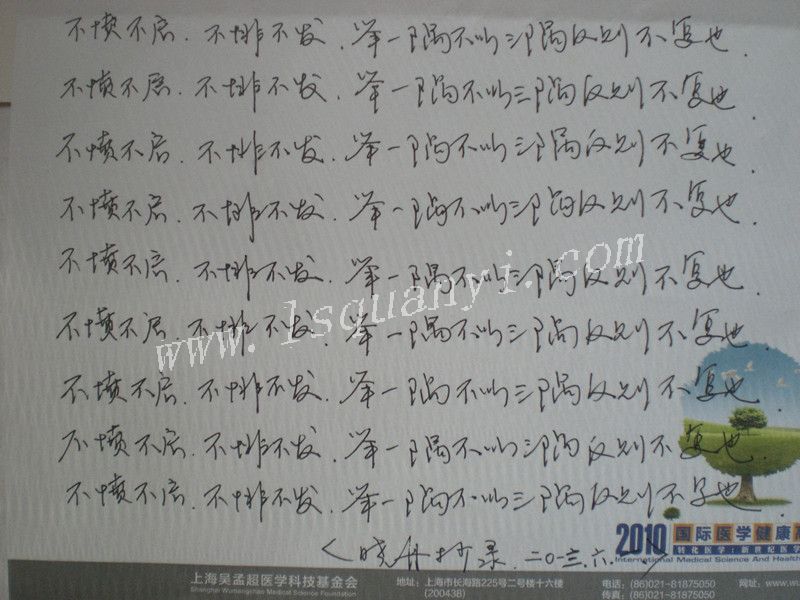 不愤不启.不悱不发.举一隅不以三隅反则不复也.
不愤不启.不悱不发.举一隅不以三隅反则不复也.
不愤不启.不悱不发.举一隅不以三隅反则不复也.
不愤不启.不悱不发.举一隅不以三隅反则不复也.
不愤不启.不悱不发.举一隅不以三隅反则不复也.
www.1squanyi.com
不愤不启.不悱不发.举一隅不以三隅反则不复也.
不愤不启.不悱不发.举一隅不以三隅反则不复也.
不愤不启.不悱不发.举一隅不以三隅反则不复也.
不愤不启.不悱不发.举一隅不以三隅反则不复也.
抄录.二〇一三.六.
2010国际医学健康
转化医学:新世纪医学
International Medical Science And Health
上海吴孟超医学科技基金会 地址:上海市长海路225号二号楼十六楼 电话:(86)021-81875050 网址:www.wu
Shanghai Wumengchao Medical Science Foundation (200438) 传真:(86)021-81875050